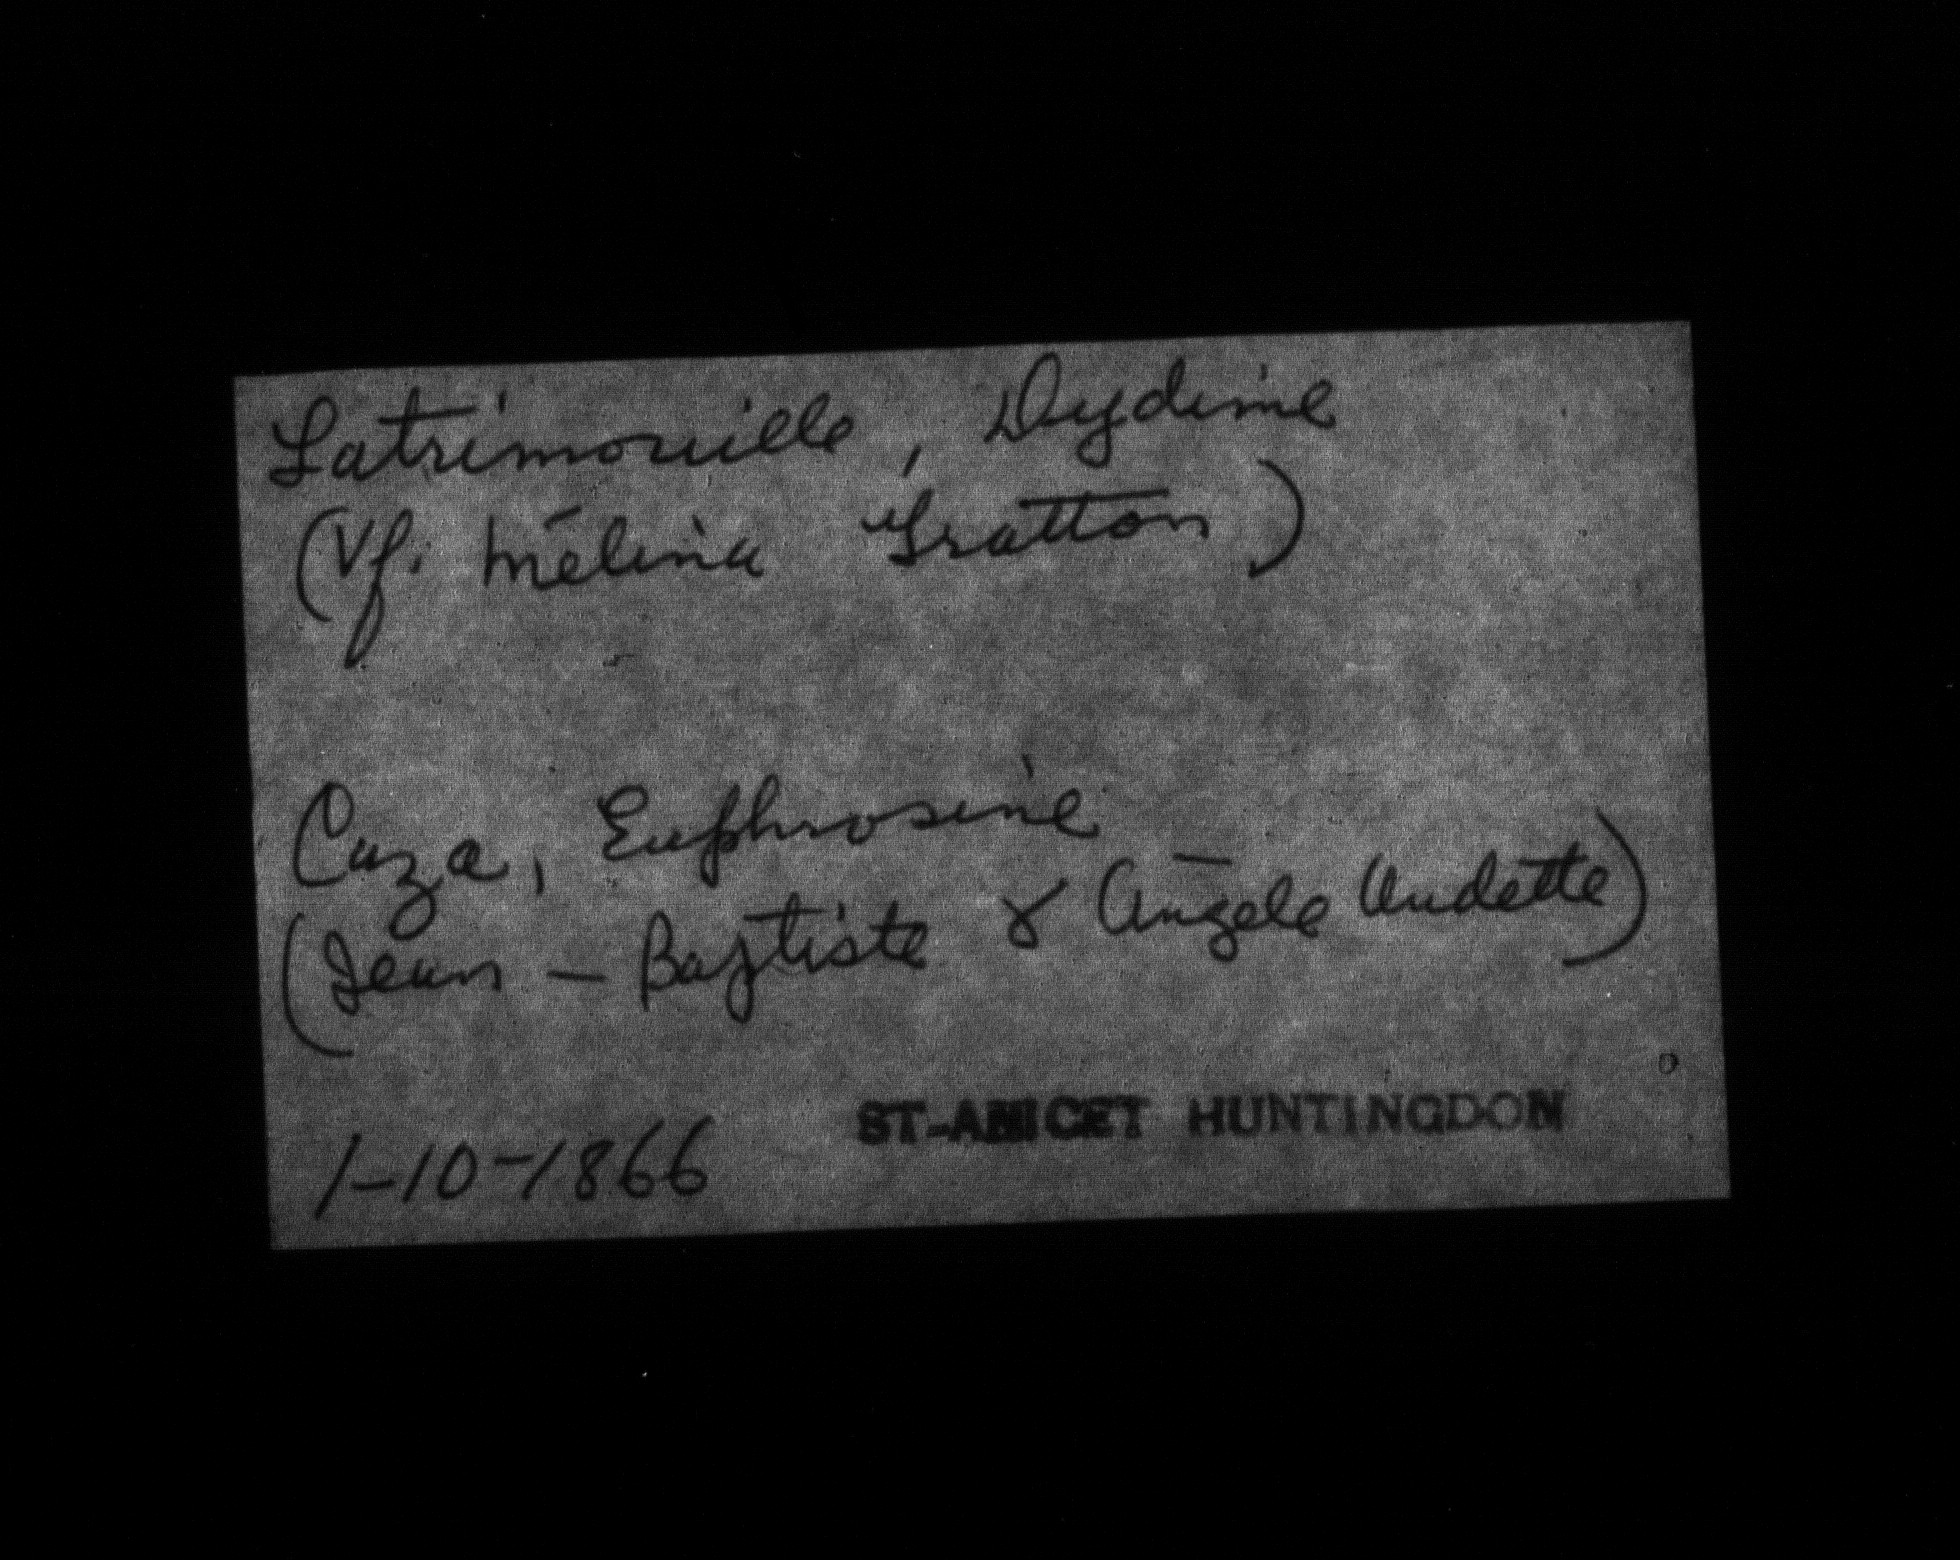 Latrimouille, Dydime
(Vf. Mélina Gratton)
Caza, Euphrosine
(Jean-Baptiste & Angèle Audette)
ST-ANICET HUNTINGDON
1-10-1866